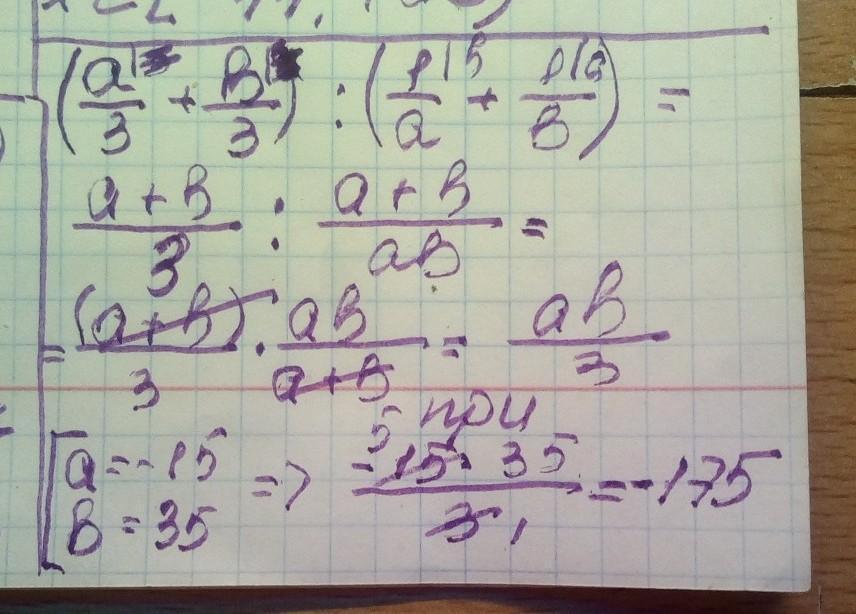 (a/3 + b/3) : (1|b/a + 1|a/b) =
a+b/3 : a+b/ab =
= (a+b)/3 · ab/a+b = ab/3
при
[a = -15
b = 35 => 5 -15 · 35/3 1 = -175